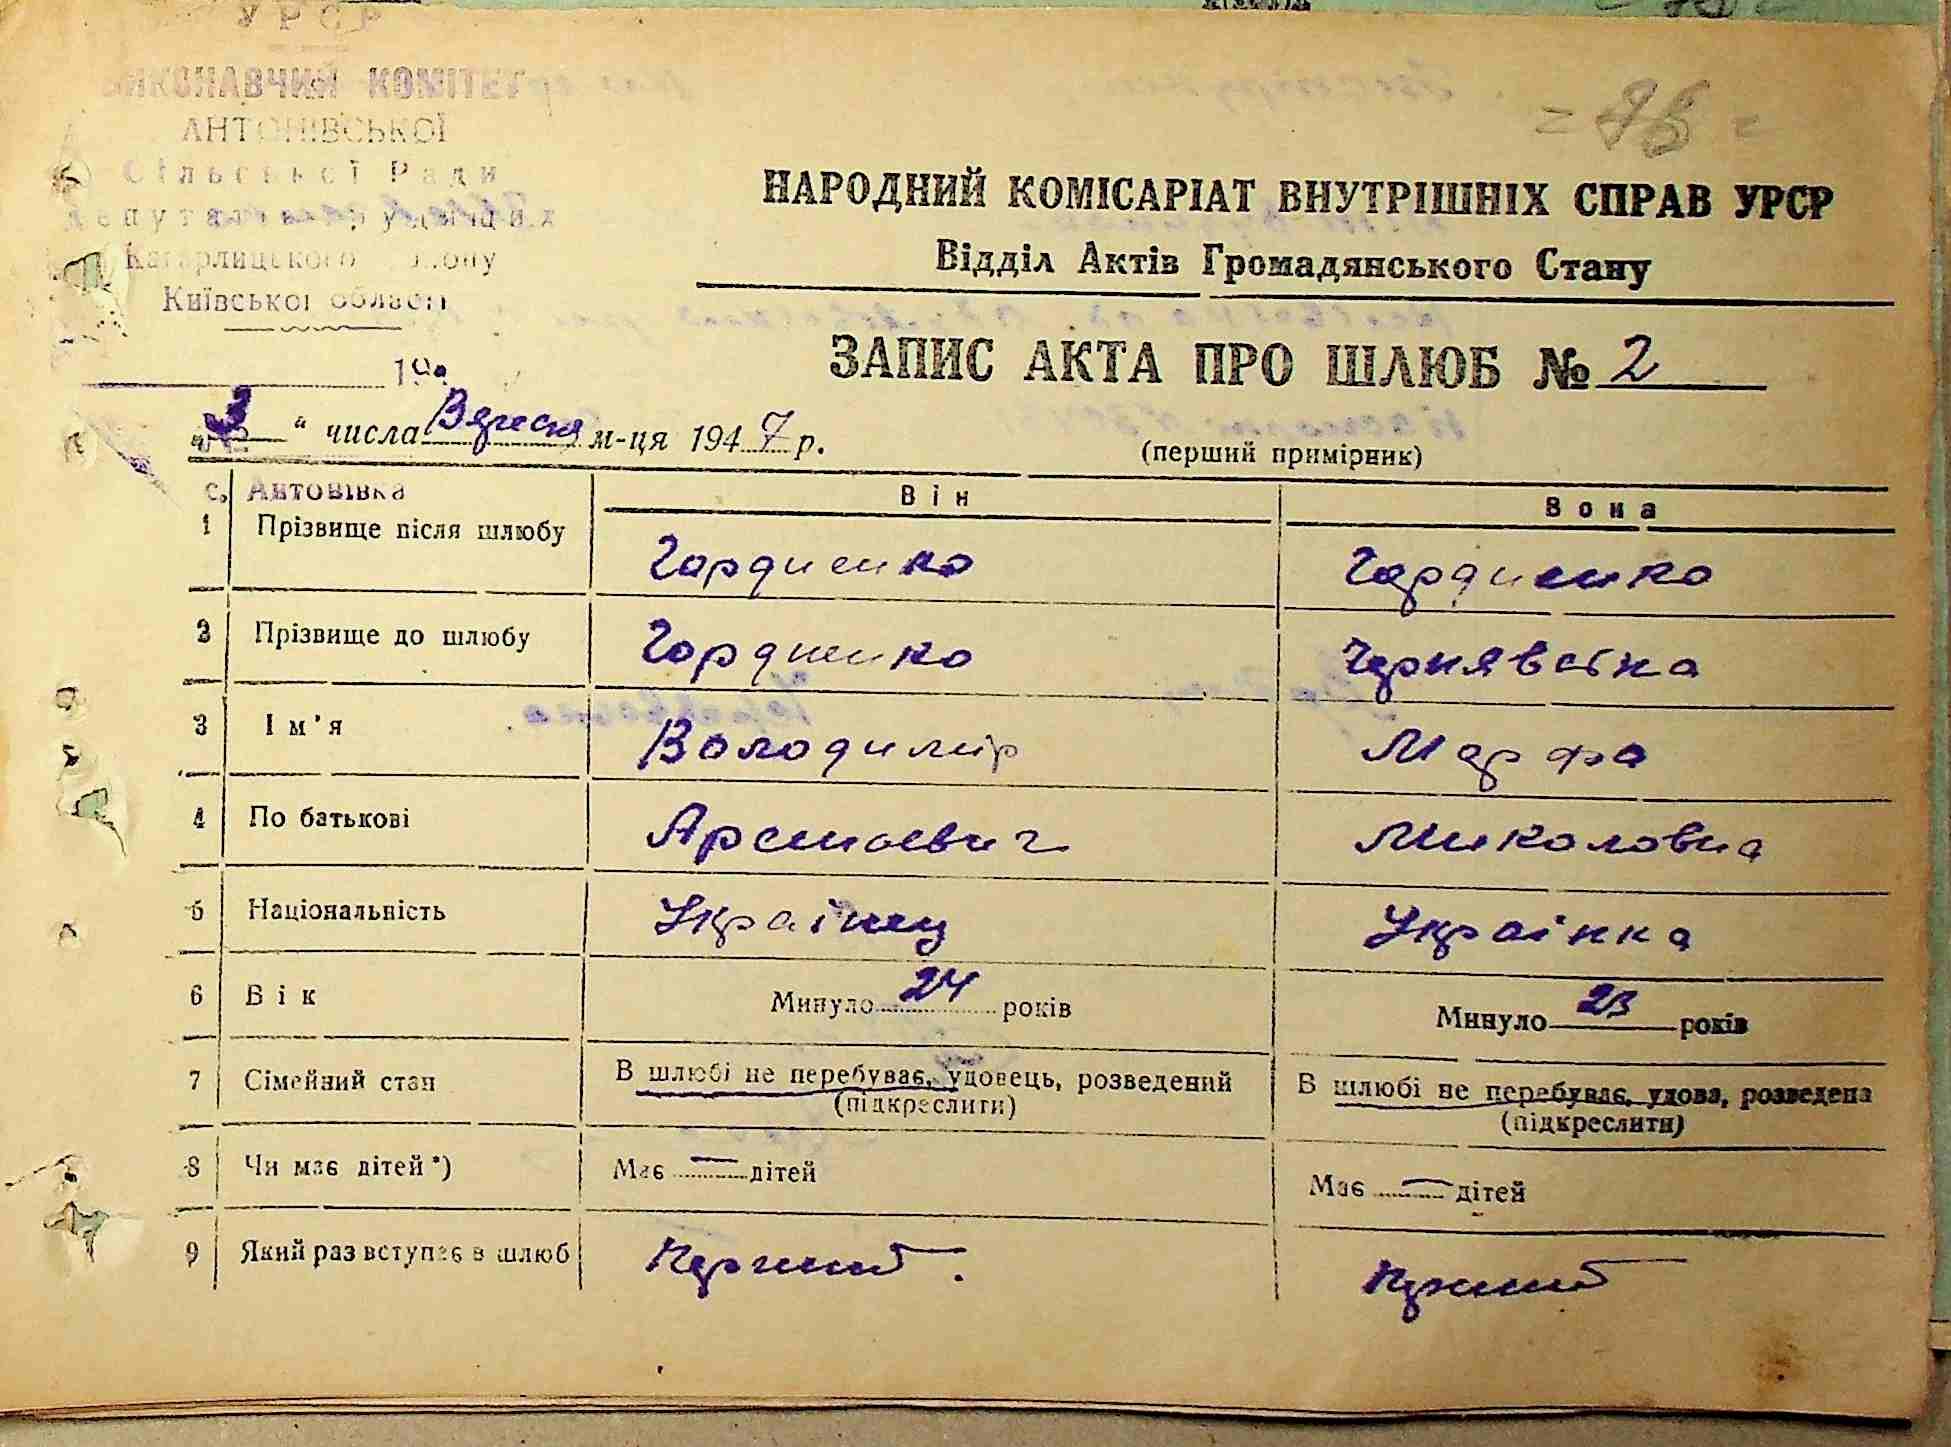 УРСР
ВИКОНАВЧИЙ КОМІТЕТ
АНТОНІВСЬКОЇ
Сільської Ради
Кагарлицького району
Київської області
19
НАРОДНИЙ КОМІСАРІАТ ВНУТРІШНІХ СПРАВ УРСР
Відділ Актів Громадянського Стану
ЗАПИС АКТА ПРО ШЛЮБ № 2
„3“ числа Вересня м-ця 1947 р.
(перший примірник)
с. Антонівка
Він
Вона
1 Прізвище після шлюбу Гордиенко Гордиенко
2 Прізвище до шлюбу Гордиенко Чернявська
3 Ім'я Володимир Марфа
4 По батькові Арсеньевич Миколовна
5 Національність Українец Українка
6 Вік Минуло 24 років Минуло 23 років
7 Сімейний стан В шлюбі не перебуває, удовець, розведений В шлюбі не перебуває, удова, розведена
(підкреслити) (підкреслити)
8 Чи має дітей*) Має — дітей Має — дітей
9 Який раз вступає в шлюб Перший. Перший